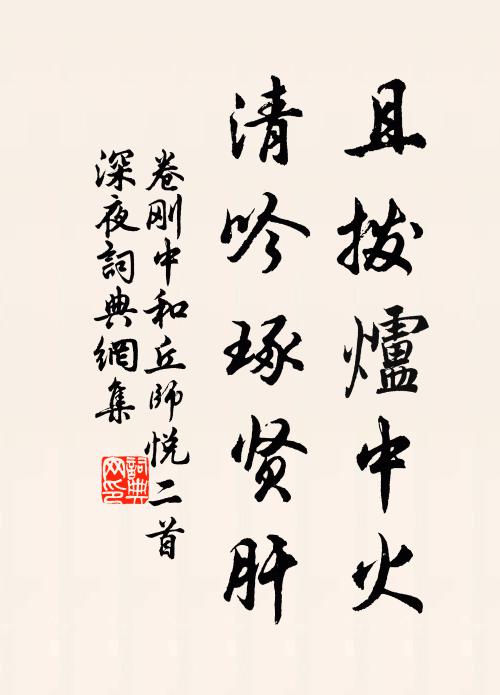 且拨爐中火
清吟琢贤肝
卷刚中和丘師悦二首
深夜詞典網集
詞典網印